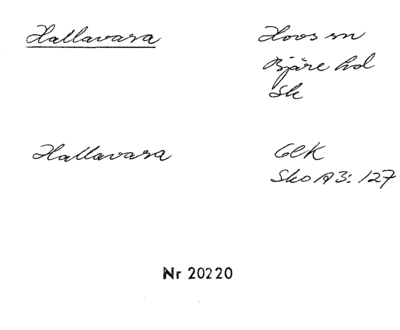 Hallavara
Hoos sn
Bjäre hd
Sk
Hallavara
GEK
Sko A3:127
Nr 20220